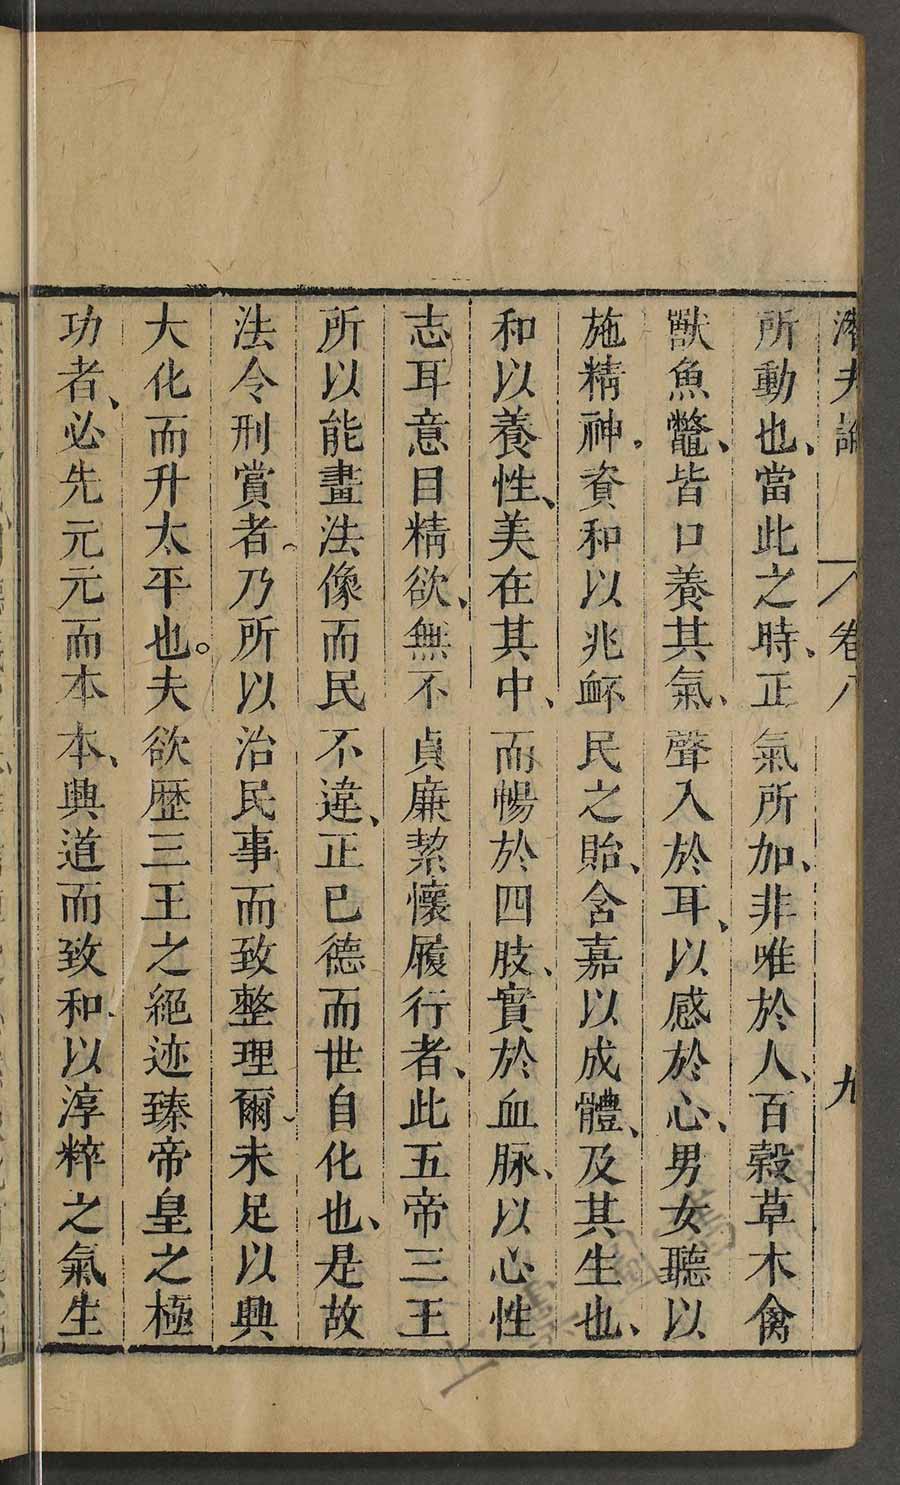 潛夫論 卷八 九
所動也、當此之時、正氣所加、非唯於人、百穀草木禽
獸魚鼈、皆口養其氣、聲入於耳、以感於心、男女聽以
施精神、資和以兆衃民之貽、含嘉以成體、及其生也、
和以養性、美在其中、而暢於四肢、實於血脉、以心性
志耳意目精欲、無不貞廉絜懷履行者、此五帝三王
所以能畫法像而民不違、正已德而世自化也、是故
法令刑賞者、乃所以治民事而致整理爾、未足以興
大化而升太平也。夫欲歴三王之絕迹臻帝皇之極
功者、必先元元而本本、興道而致和、以淳粹之氣生